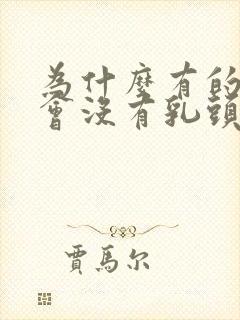 為什麼有的
會沒有乳頭
賈馬尔